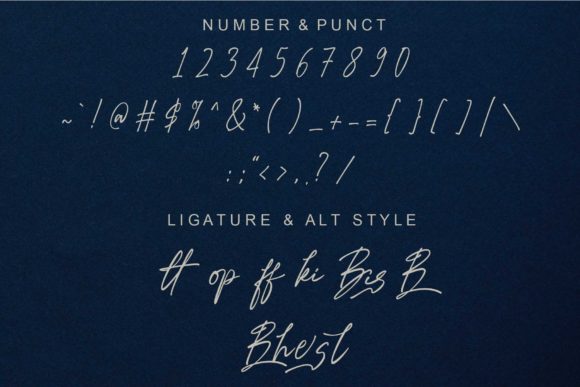 NUMBER & PUNCT
1 2 3 4 5 6 7 8 9 0
~ ` ! @ # $ % ^ & * ( ) _ + - = { } [ ] | \
: ; " < > , . ? /
LIGATURE & ALT STYLE
tt op ff ki Bis B